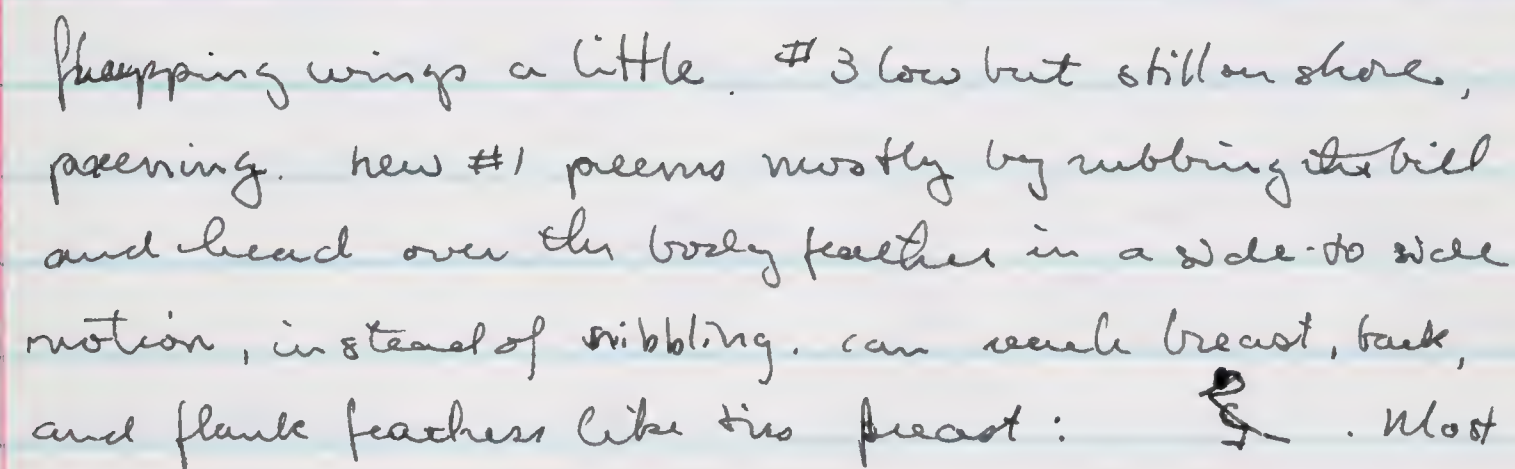 flapping wings a little. #3 low but still on shore,
preening. new #1 preens mostly by rubbing its bill
and head over the body feather in a side-to side
motion, instead of nibbling. can reach breast, back,
and flank feathers like this breast: . Most